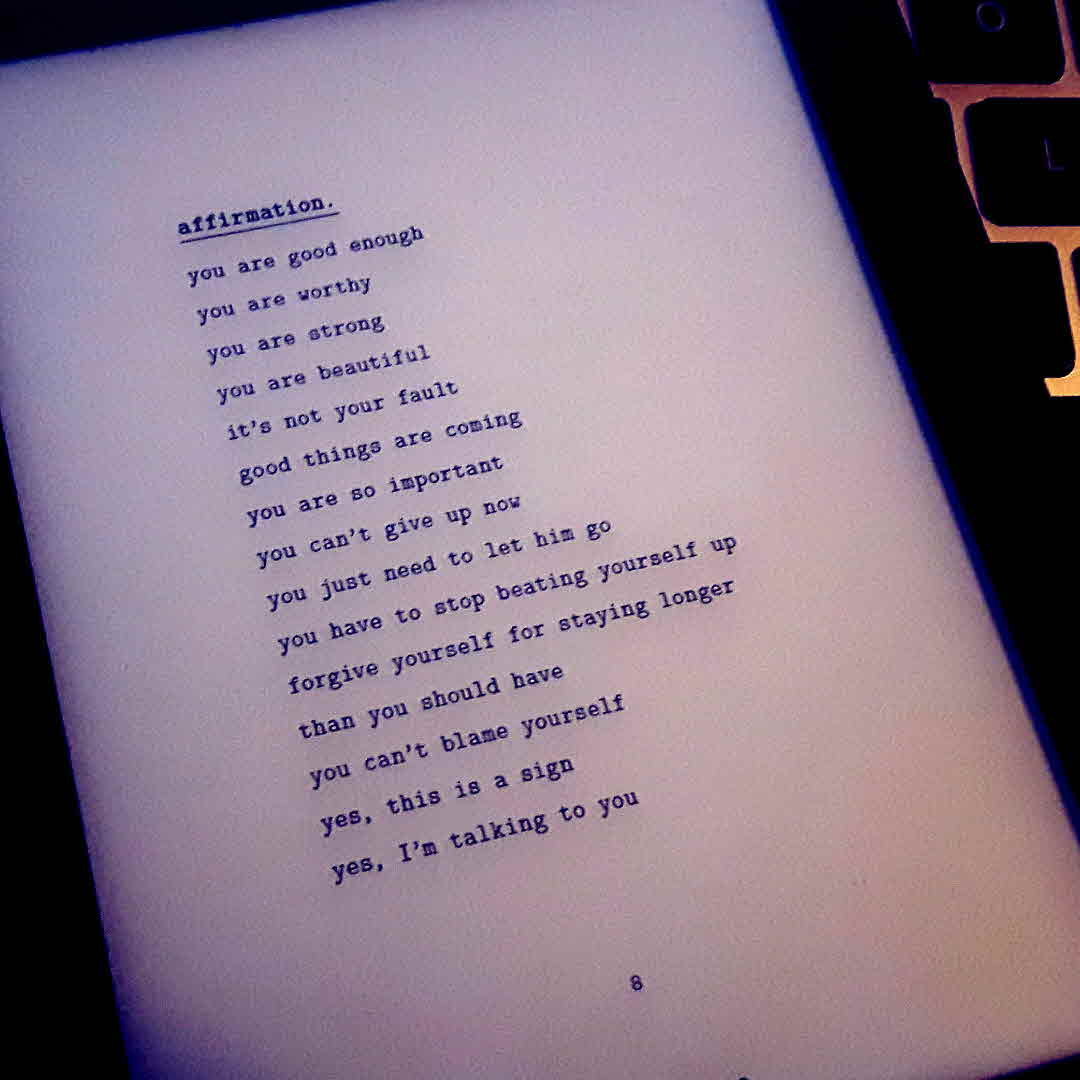 affirmation.
you are good enough
you are worthy
you are strong
you are beautiful
it's not your fault
good things are coming
you are so important
you can't give up now
you just need to let him go
you have to stop beating yourself up
forgive yourself for staying longer
than you should have
you can't blame yourself
yes, this is a sign
yes, I'm talking to you
8
O
L